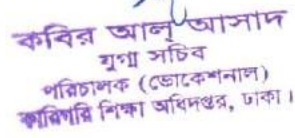 কবির আল্ আসাদ
যুগ্ম সচিব
পরিচালক (ভোকেশনাল)
কারিগরি শিক্ষা অধিদপ্তর, ঢাকা।